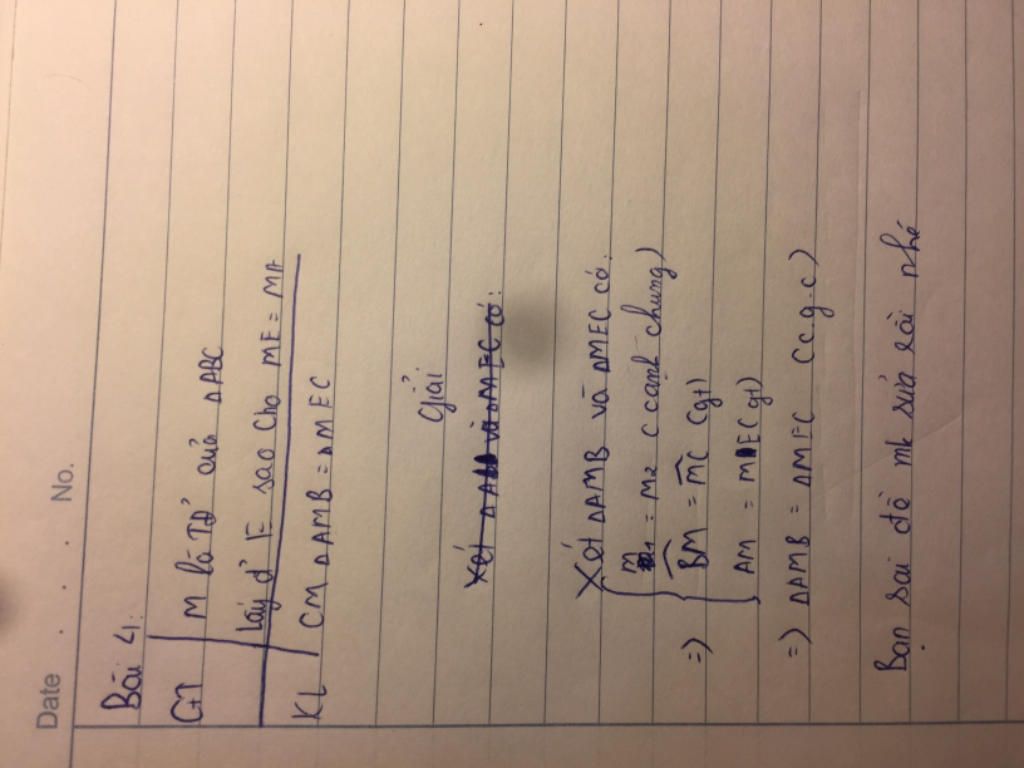 Date . . . No.
Bài 4:
GT M là TĐ của ΔABC
Lấy đ' E sao cho ME = MA
KL CM ΔAMB = ΔMEC
Giải
Xét ΔAMB và ΔMEC có:
M1 = M2 (cạnh chung)
=> BM = MC (gt)
AM = ME (gt)
=> ΔAMB = ΔMEC (c.g.c)
Bạn sai đề mk sửa rồi nhé